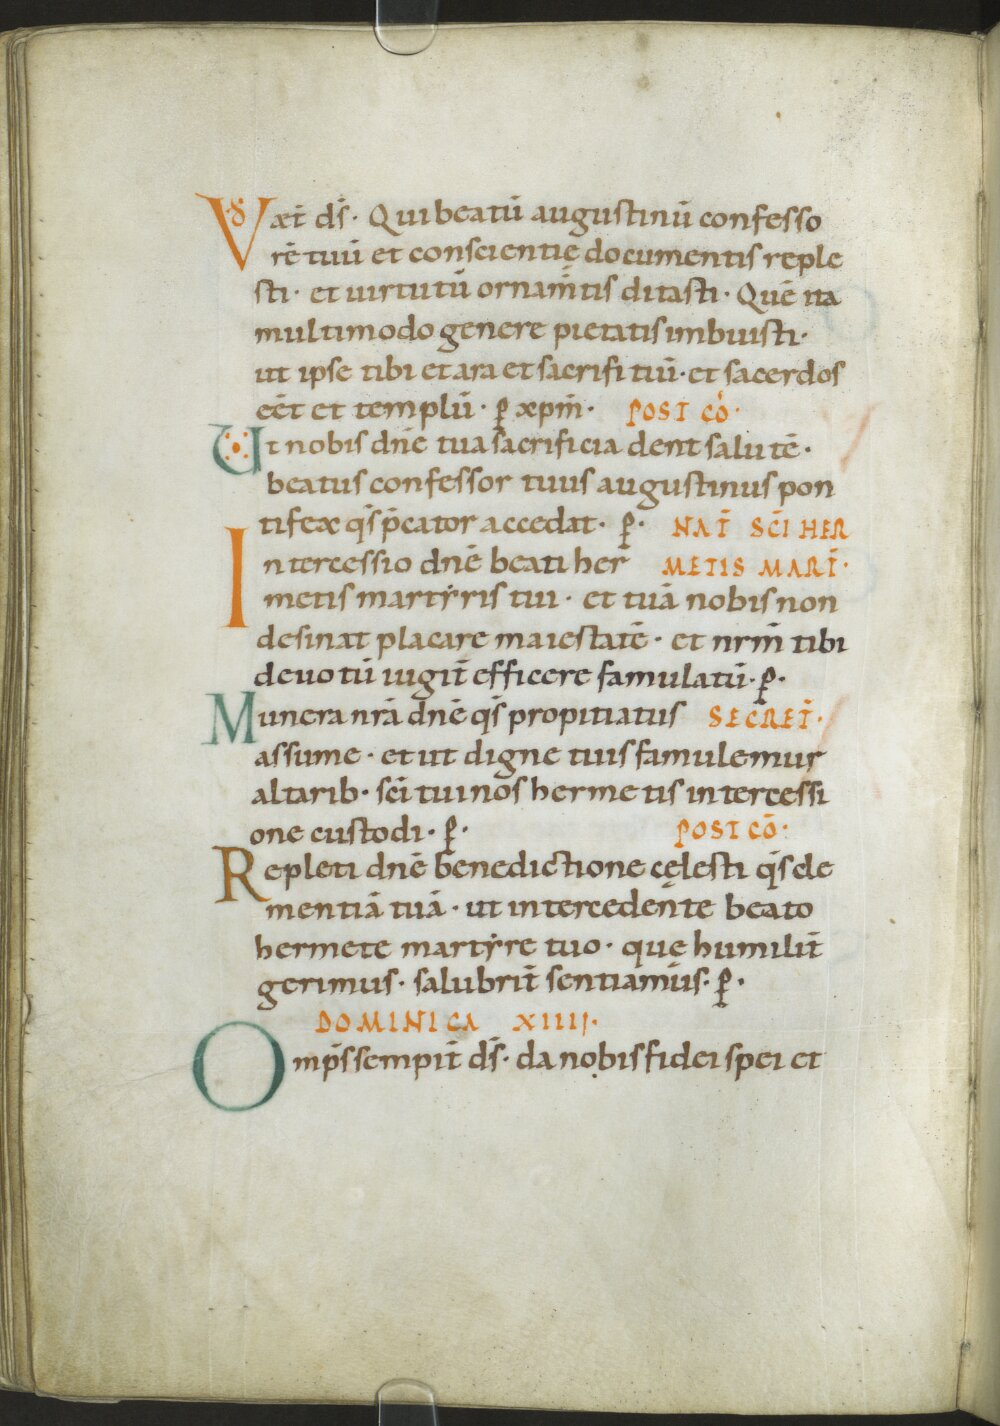 Vꝺ æt̄ ds̄· Qui beatū augustinū confesso
rē tuū et conscientię documentis reple
sti· et uirtutū ornam̄tis ditasti· Quē ita
multimodo genere pietatis imbuisti·
ut ipse tibi et ara et sacrifi tiū· et sacerdos
eēt et templū· ꝑ xpm̄· POST CŌ·
Ut nobis dn̄e tua sacrificia dent salutē·
beatus confessor tuus augustinus pon
tifex qs̄ p̄cator accedat· ꝑ· NAT̄ SC̄I HER
Intercessio dn̄e beati her METIS MART̄·
metis martẏris tui· et tuā nobis non
desinat placare maiestatē· et nrm̄ tibi
deuotū iugit̄ efficere famulatū· ꝑ·
Munera nrā dn̄e qs̄ propitiatus SECRET̄·
assume· et ut digne tuis famulemur
altarib· sc̄i tui nos hermetis intercessi
one custodi· ꝑ· POST CŌ·
Repleti dn̄e benedictione cęlesti qs̄ cle
mentiā tuā· ut intercedente beato
hermete martẏre tuo· quę humilit̄
gerimus· salubrit̄ sentiamus· ꝑ·
DOMINICA XIIII·
Omp̄s sempit̄ ds̄· da nobis fidei spei et